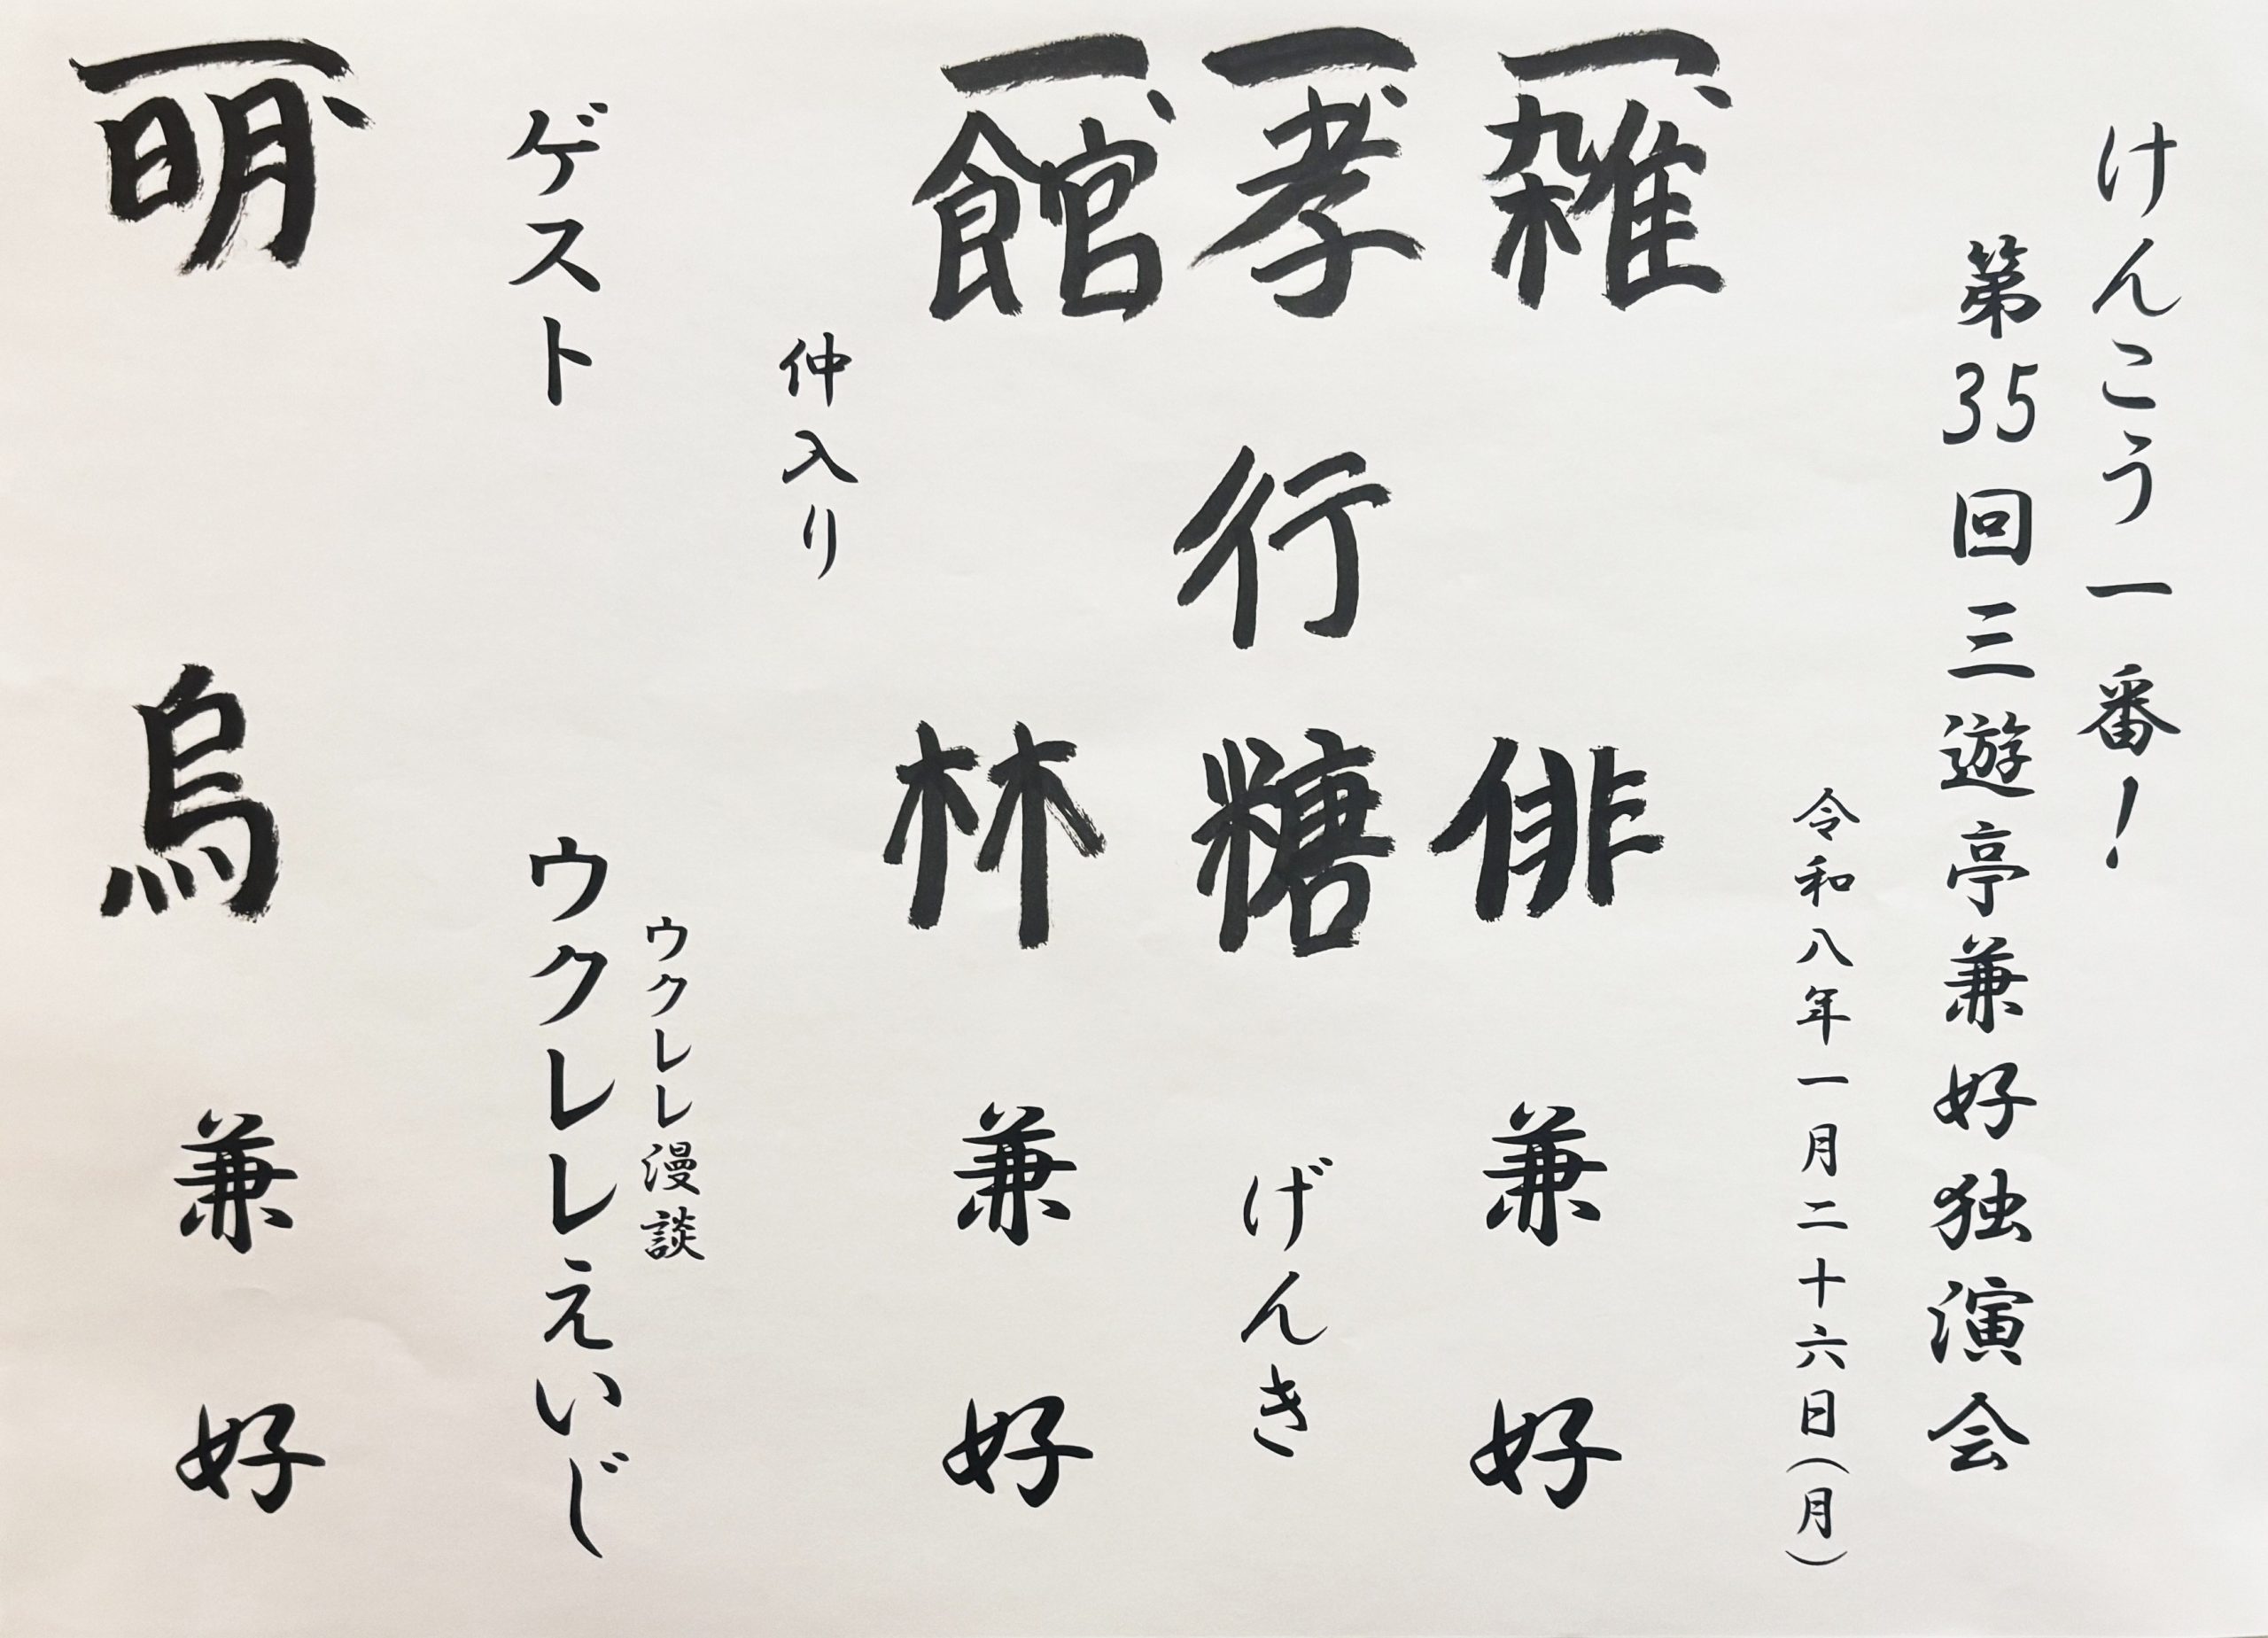 けんこう一番!
第35回三遊亭兼好独演会
令和八年一月二十六日(月)
一、雑俳 兼好
一、孝行糖 げんき
一、館林 兼好
仲入り
ウクレレ漫談
ゲスト ウクレレえいじ
一、明烏 兼好